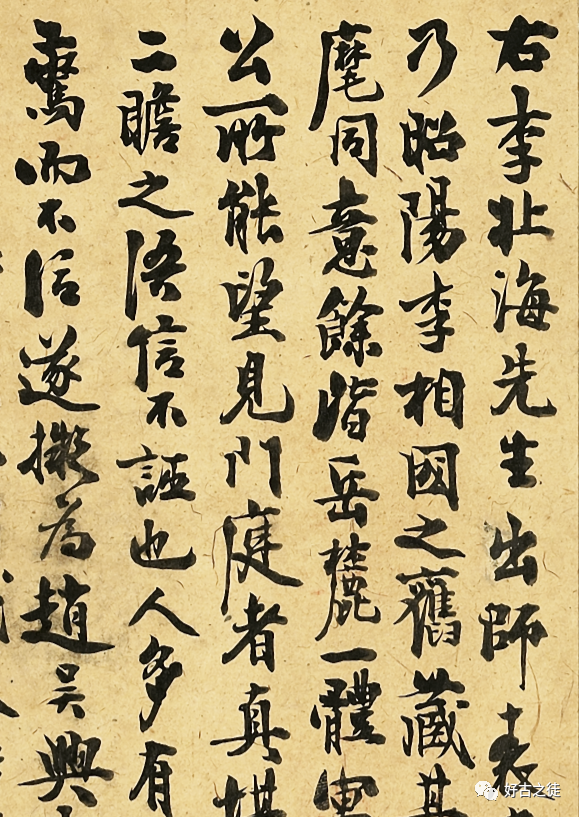 右李北海先生出師表
乃昭陽李相國之舊藏其
麾同意餘皆岳麓一體
公所能望見門庭者真堪
二瞻之語信不誣也人多有
驚而不信遂擬為趙吳興
好古之徒